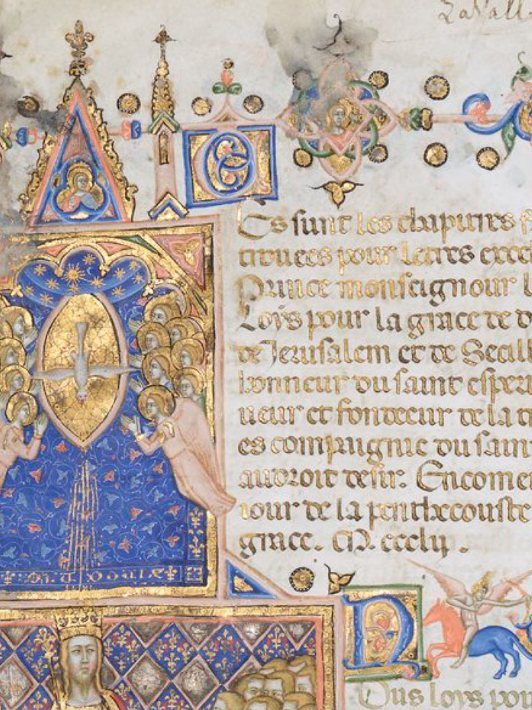 LaVall
C
Es sunt les chapitres
trouees pour letres exce
Prince monseignour l
Loys pour la grace de d
de Jerusalem et de Secill
honneur du saint esper
ueur et fondeeur de la
es compaignie du sain
au droit desir. Encome
iour de la penthecouste
grace. M. ccclij.
N
Ous loys